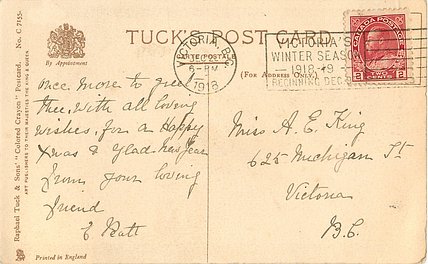 TUCK'S POST CARD
By Appointment
CARTE POSTALE
(For Address Only.)
VICTORIA, B.C.
PM
1918
VICTORIA'S
WINTER SEASON
1918-19
BEGINNING DEC
CANADA POSTAGE
2 TWO CENTS 2
Raphael Tuck & Sons' "Colored Crayon" Postcard. No. C 7155.
ART PUBLISHERS TO THEIR MAJESTIES THE KING & QUEEN
Once more to greet
thee, with all loving
wishes, for a Happy
Xmas & Glad-new year
from your loving
friend
E
Miss A. E. King
625 Michigan St
Victoria
B.C.
Printed in England